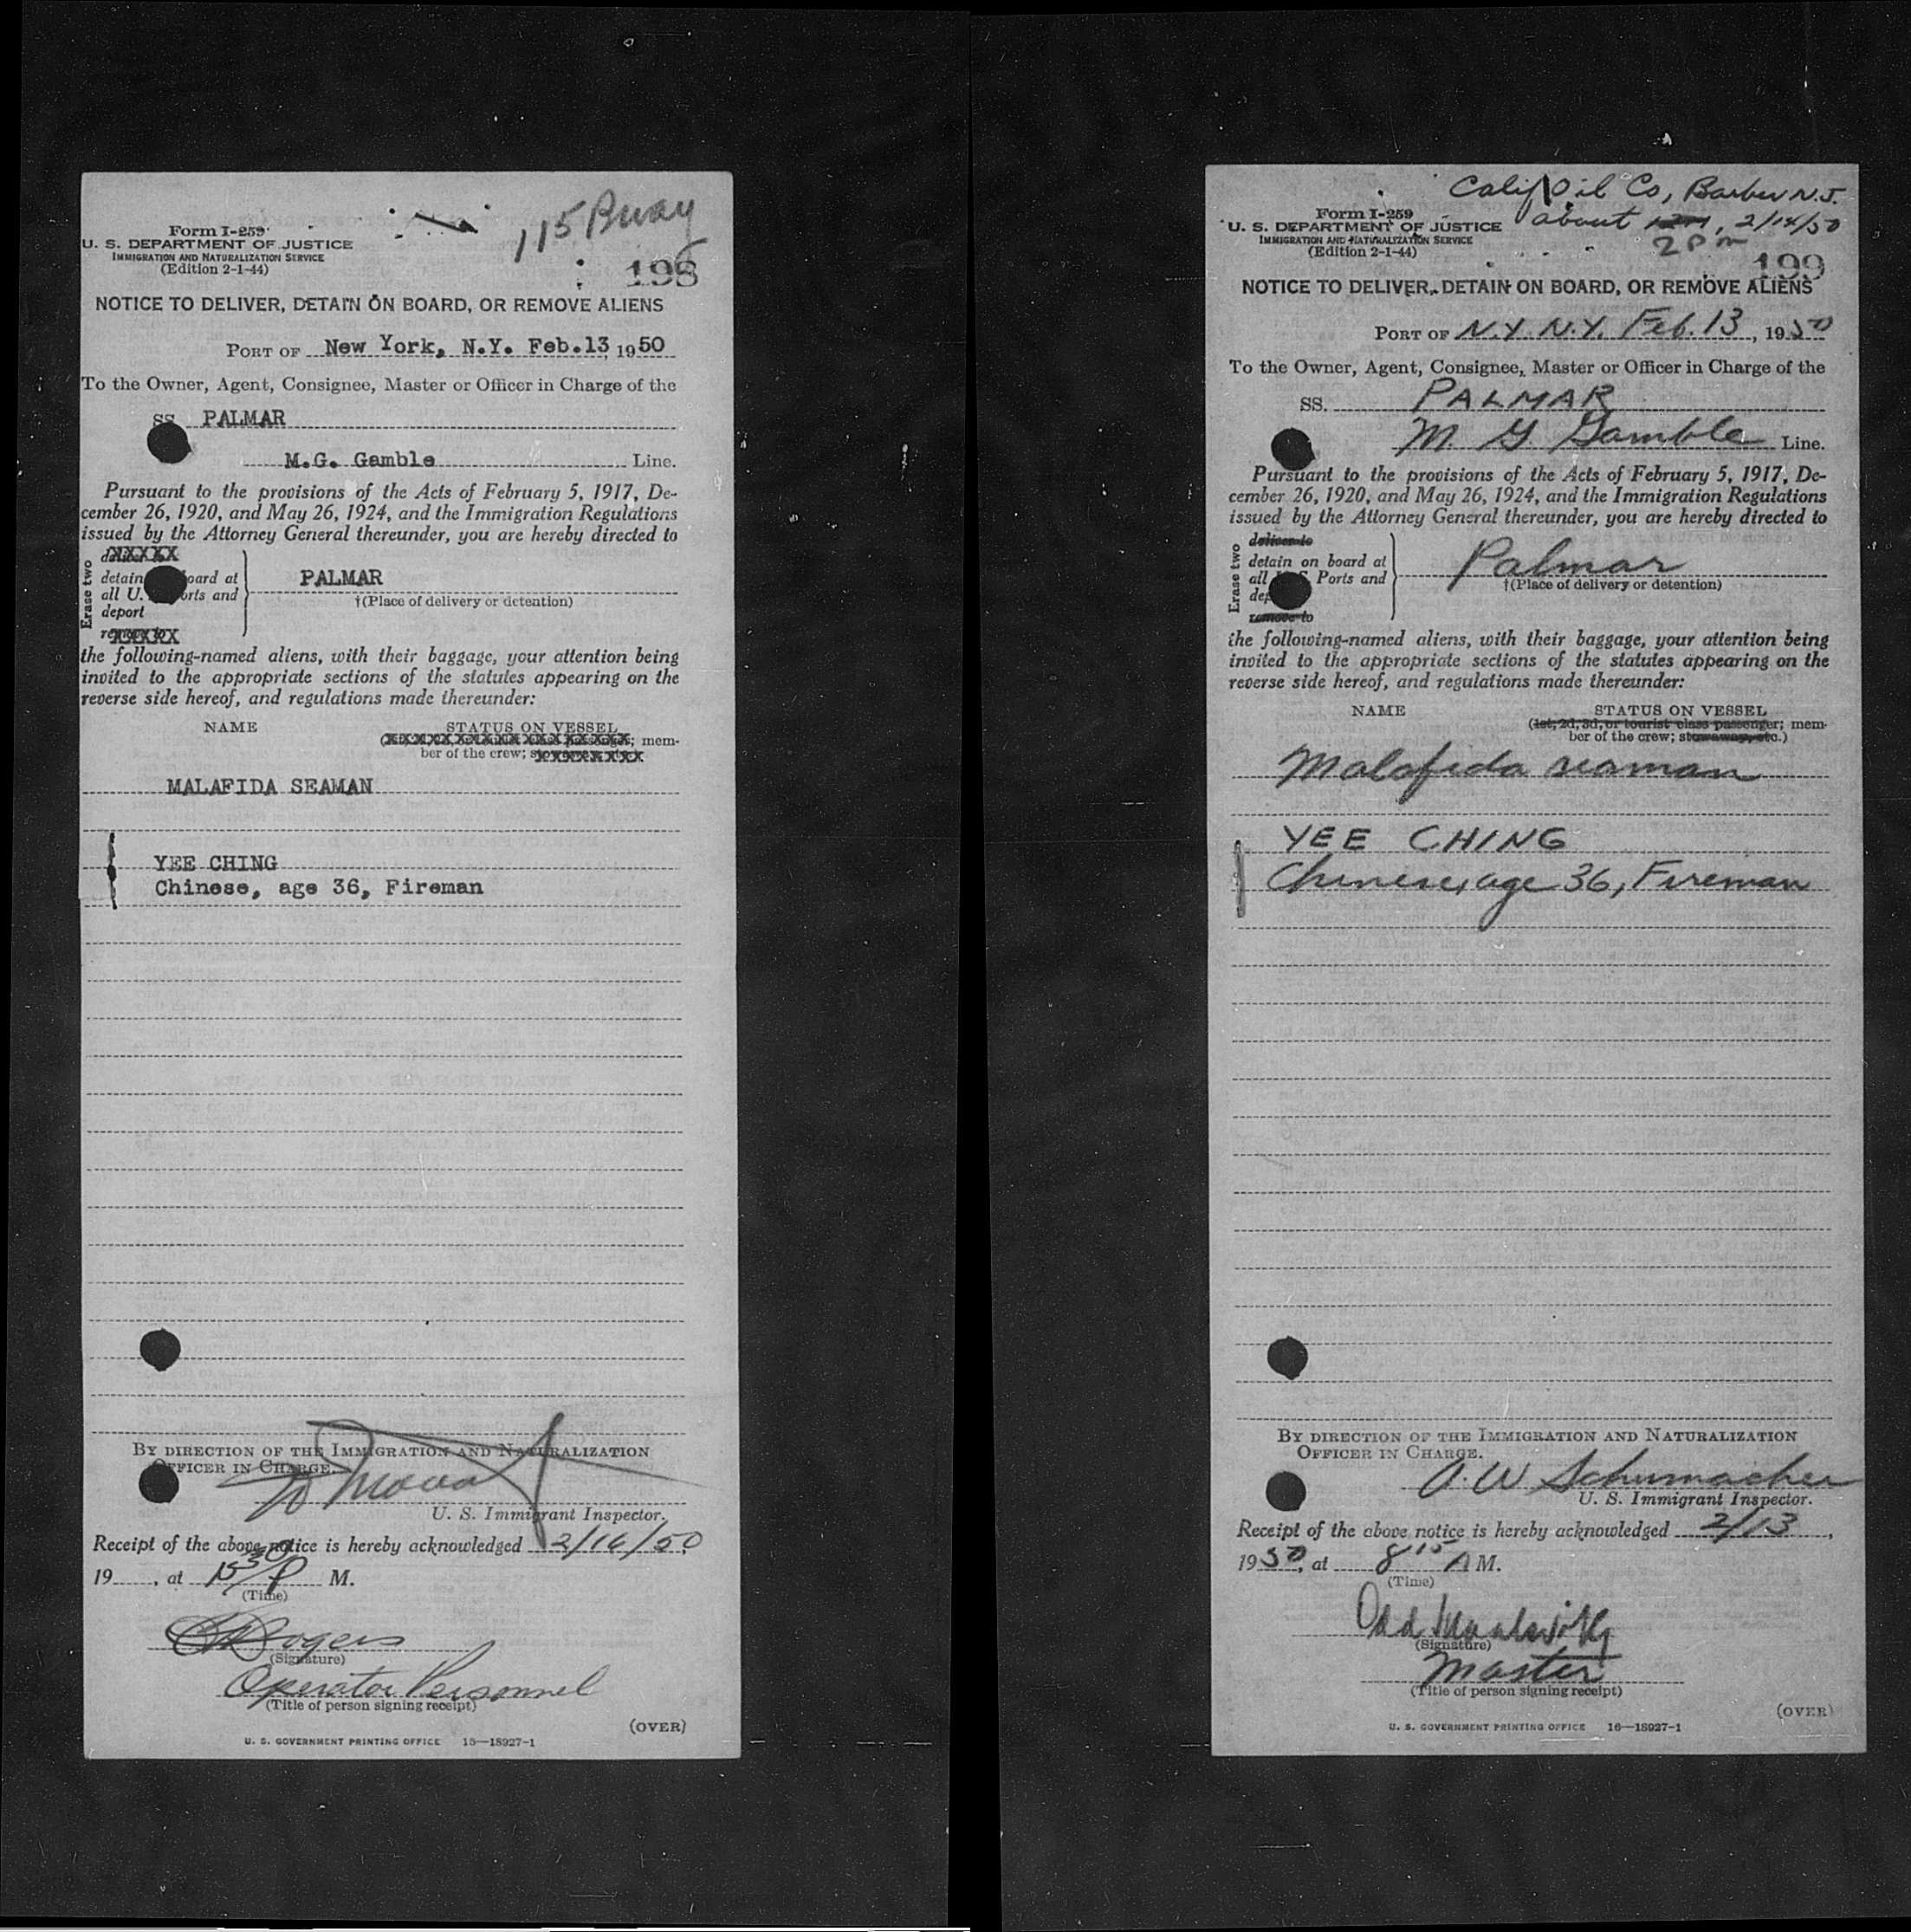 115 Bway
Form I-259
U. S. DEPARTMENT OF JUSTICE
IMMIGRATION AND NATURALIZATION SERVICE
(Edition 2-1-44)
198
NOTICE TO DELIVER, DETAIN ON BOARD, OR REMOVE ALIENS
PORT OF New York, N.Y. Feb.13, 1950
To the Owner, Agent, Consignee, Master or Officer in Charge of the
SS. PALMAR
M.G. Gamble Line.
Pursuant to the provisions of the Acts of February 5, 1917, De-
cember 26, 1920, and May 26, 1924, and the Immigration Regulations
issued by the Attorney General thereunder, you are hereby directed to
Erase two
detain board at
all U. orts and
deport
PALMAR
†(Place of delivery or detention)
the following-named aliens, with their baggage, your attention being
invited to the appropriate sections of the statutes appearing on the
reverse side hereof, and regulations made thereunder:
NAME STATUS ON VESSEL
; mem-
ber of the crew;
MALAFIDA SEAMAN
YEE CHING
Chinese, age 36, Fireman
BY DIRECTION OF THE IMMIGRATION AND NATURALIZATION
OFFICER IN CHARGE.
U. S. Immigrant Inspector.
Receipt of the above notice is hereby acknowledged 2/16/50,
19 , at M.
(Time)
Rogers
(Signature)
Operator Personnel
(Title of person signing receipt)
(OVER)
U. S. GOVERNMENT PRINTING OFFICE 16—18927-1
Calif Oil Co, Barber N.J.
about 2/14/50
2 pm
Form I-259
U. S. DEPARTMENT OF JUSTICE
IMMIGRATION AND NATURALIZATION SERVICE
(Edition 2-1-44)
199
NOTICE TO DELIVER, DETAIN ON BOARD, OR REMOVE ALIENS
PORT OF N.Y. N.Y. Feb. 13, 1950
To the Owner, Agent, Consignee, Master or Officer in Charge of the
SS. PALMAR
M. G. Gamble Line.
Pursuant to the provisions of the Acts of February 5, 1917, De-
cember 26, 1920, and May 26, 1924, and the Immigration Regulations
issued by the Attorney General thereunder, you are hereby directed to
Erase two
deliver to
detain on board at
all Ports and
dep
remove to
Palmar
†(Place of delivery or detention)
the following-named aliens, with their baggage, your attention being
invited to the appropriate sections of the statutes appearing on the
reverse side hereof, and regulations made thereunder:
NAME STATUS ON VESSEL
(1st, 2d, 3d, or tourist class passenger; mem-
ber of the crew; stowaway, etc.)
Malafida seaman
YEE CHING
Chinese, age 36, Fireman
BY DIRECTION OF THE IMMIGRATION AND NATURALIZATION
OFFICER IN CHARGE.
A. W Schumacher
U. S. Immigrant Inspector.
Receipt of the above notice is hereby acknowledged 2/13,
1950, at 8 15 A M.
(Time)
(Signature)
Master
(Title of person signing receipt)
(OVER)
U. S. GOVERNMENT PRINTING OFFICE 16—18927-1